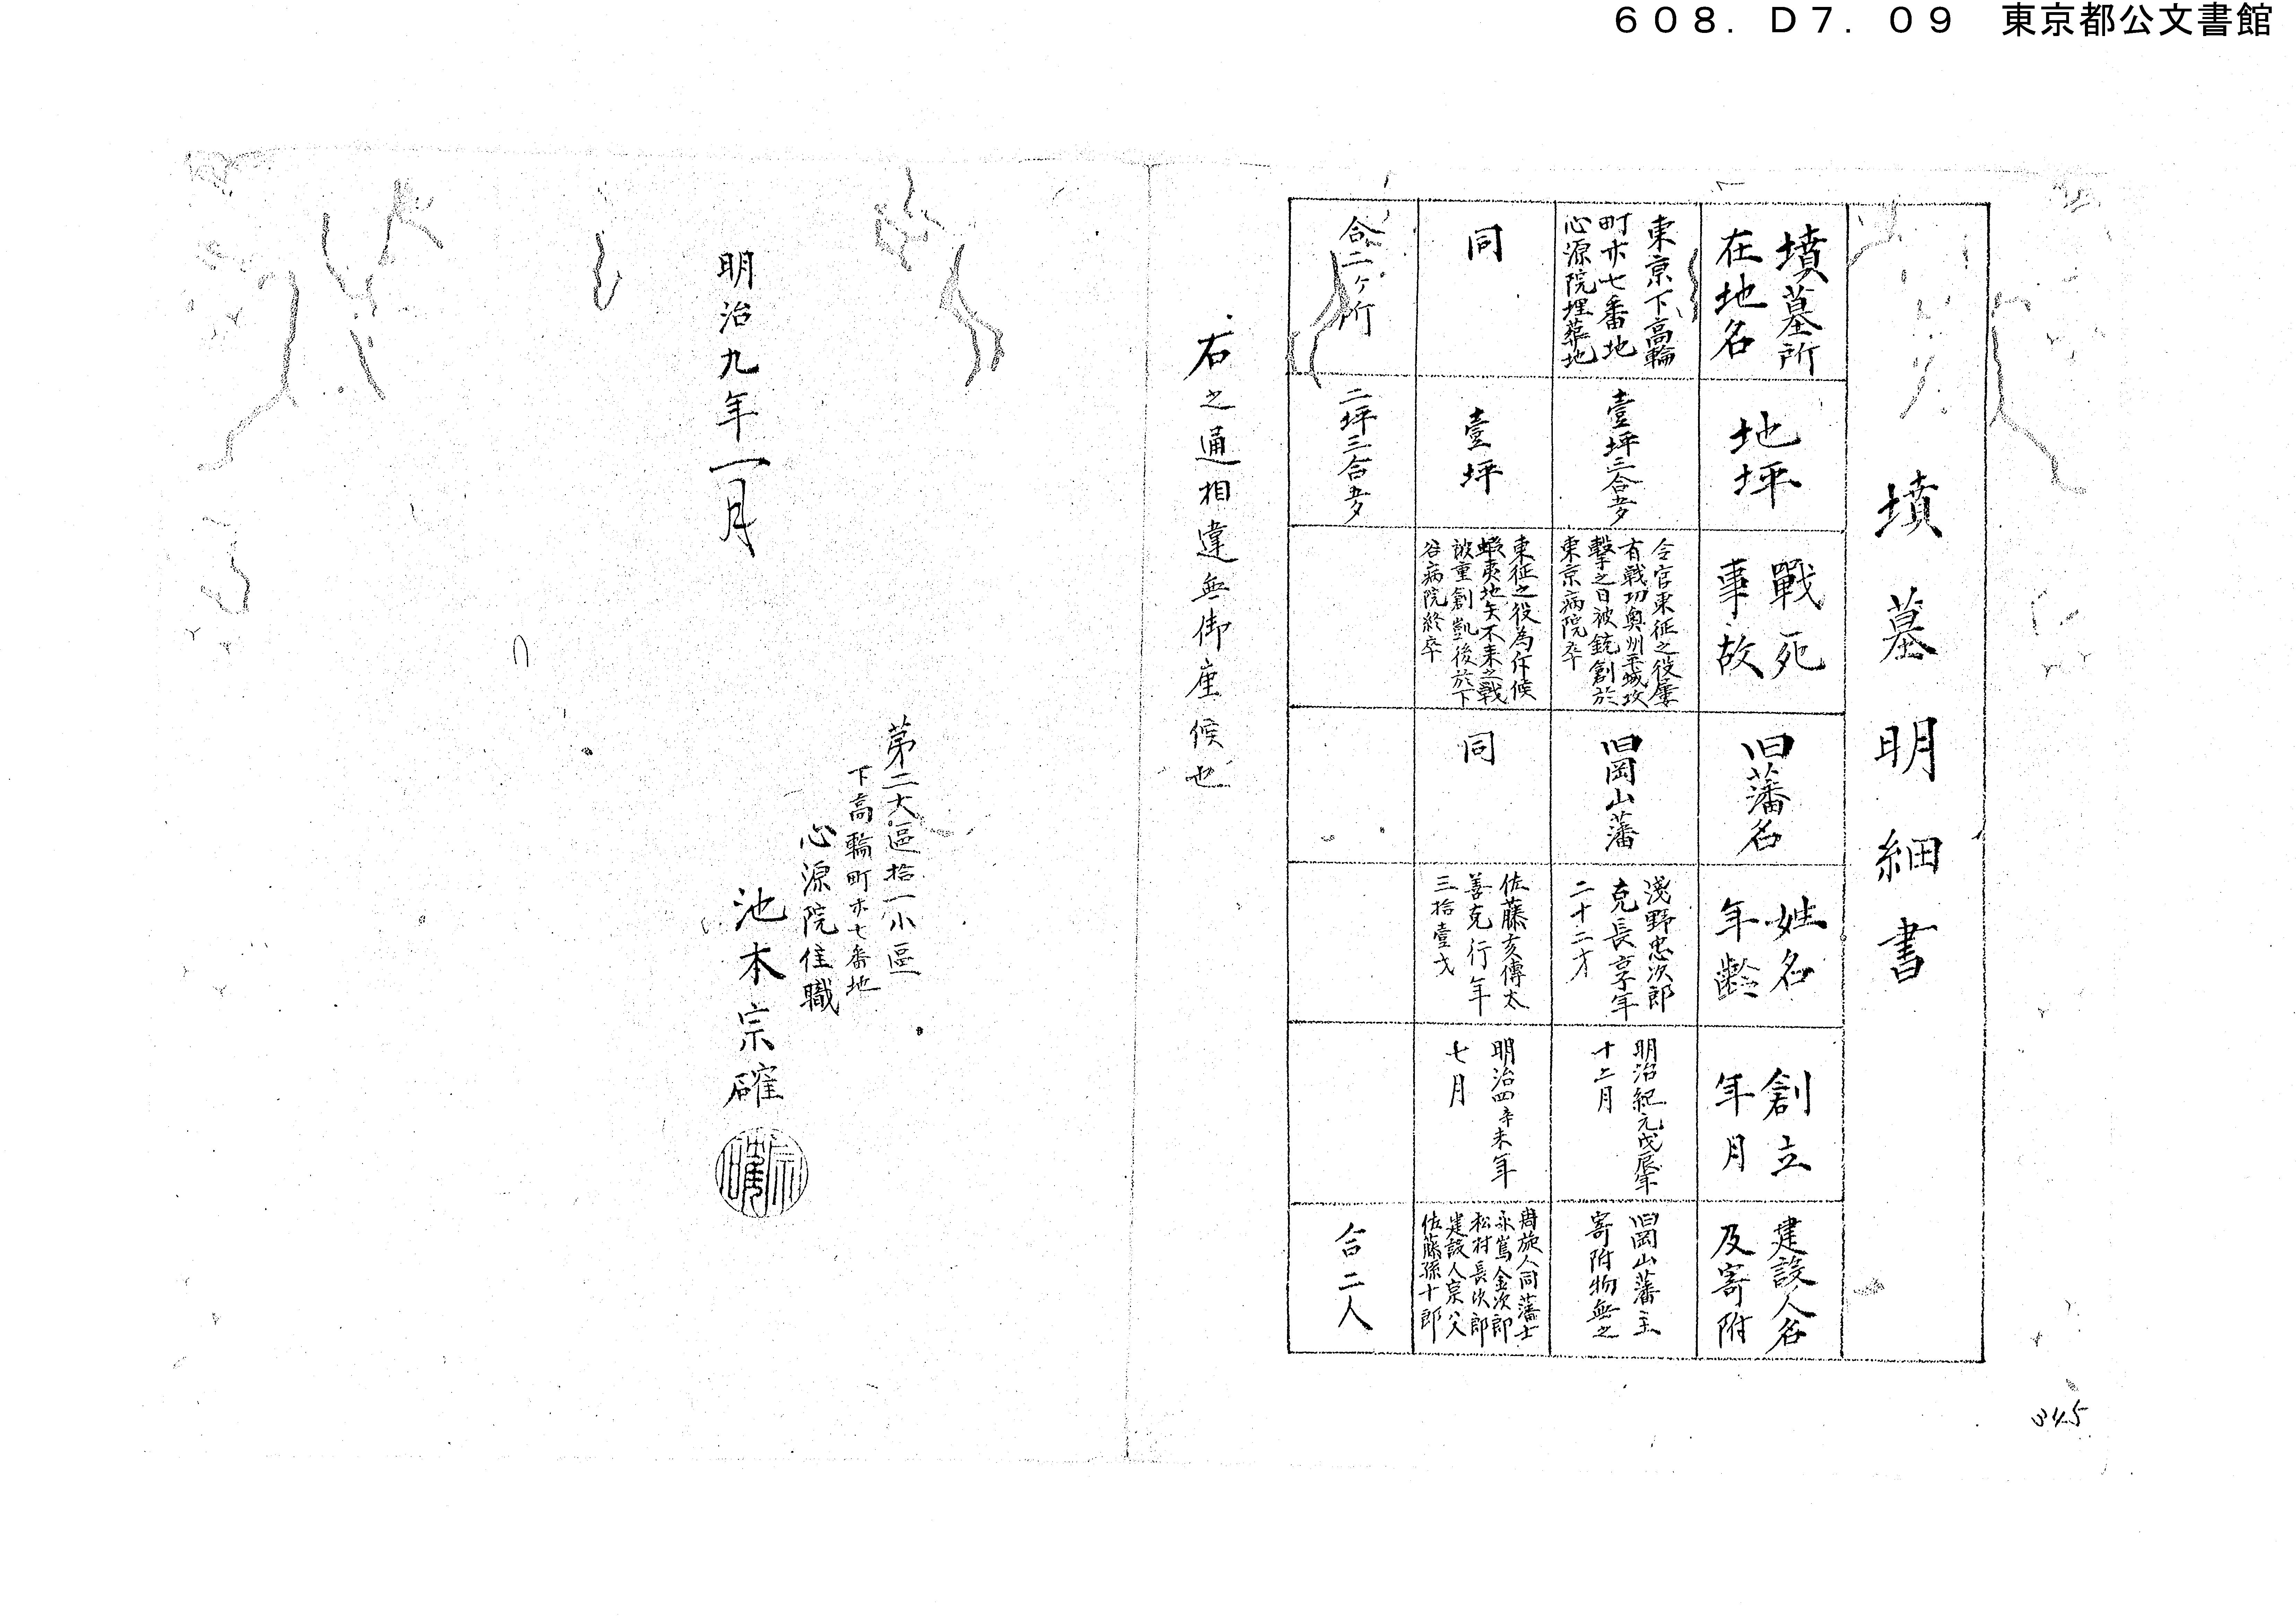 608．D7．09　東京都公文書館
墳墓明細書
墳墓所
在地名
地坪
戰死
事故
旧藩名
姓名
年齢
創立
年月
建設人名
及寄附
東京下高輪
町廿七番地
心源院埋葬地
壹坪三合五夕
令官東征之役屡
有戦功奥州平城攻
擊之日被銃創於
東京病院卒
旧岡山藩
淺野忠次郎
克長享年
二十二才
明治紀元戊辰年
十二月
旧岡山藩主
寄附物無之
同
壹坪
東征之役為斥候
蝦夷地矢不来之戦
被重創凱後於下
谷病院終卒
同
佐藤亥傳太
善克行年
三拾壹才
明治四辛未年
七月
周旋人同藩士
永嶌金次郎
松村長次郎
建設人宗父
佐藤孫十郎
合二ヶ所
二坪三合五夕
合二人
右之通相違無御座候也
第二大區拾一小區
下高輪町廿七番地
心源院住職
池本宗確
明治九年一月
345